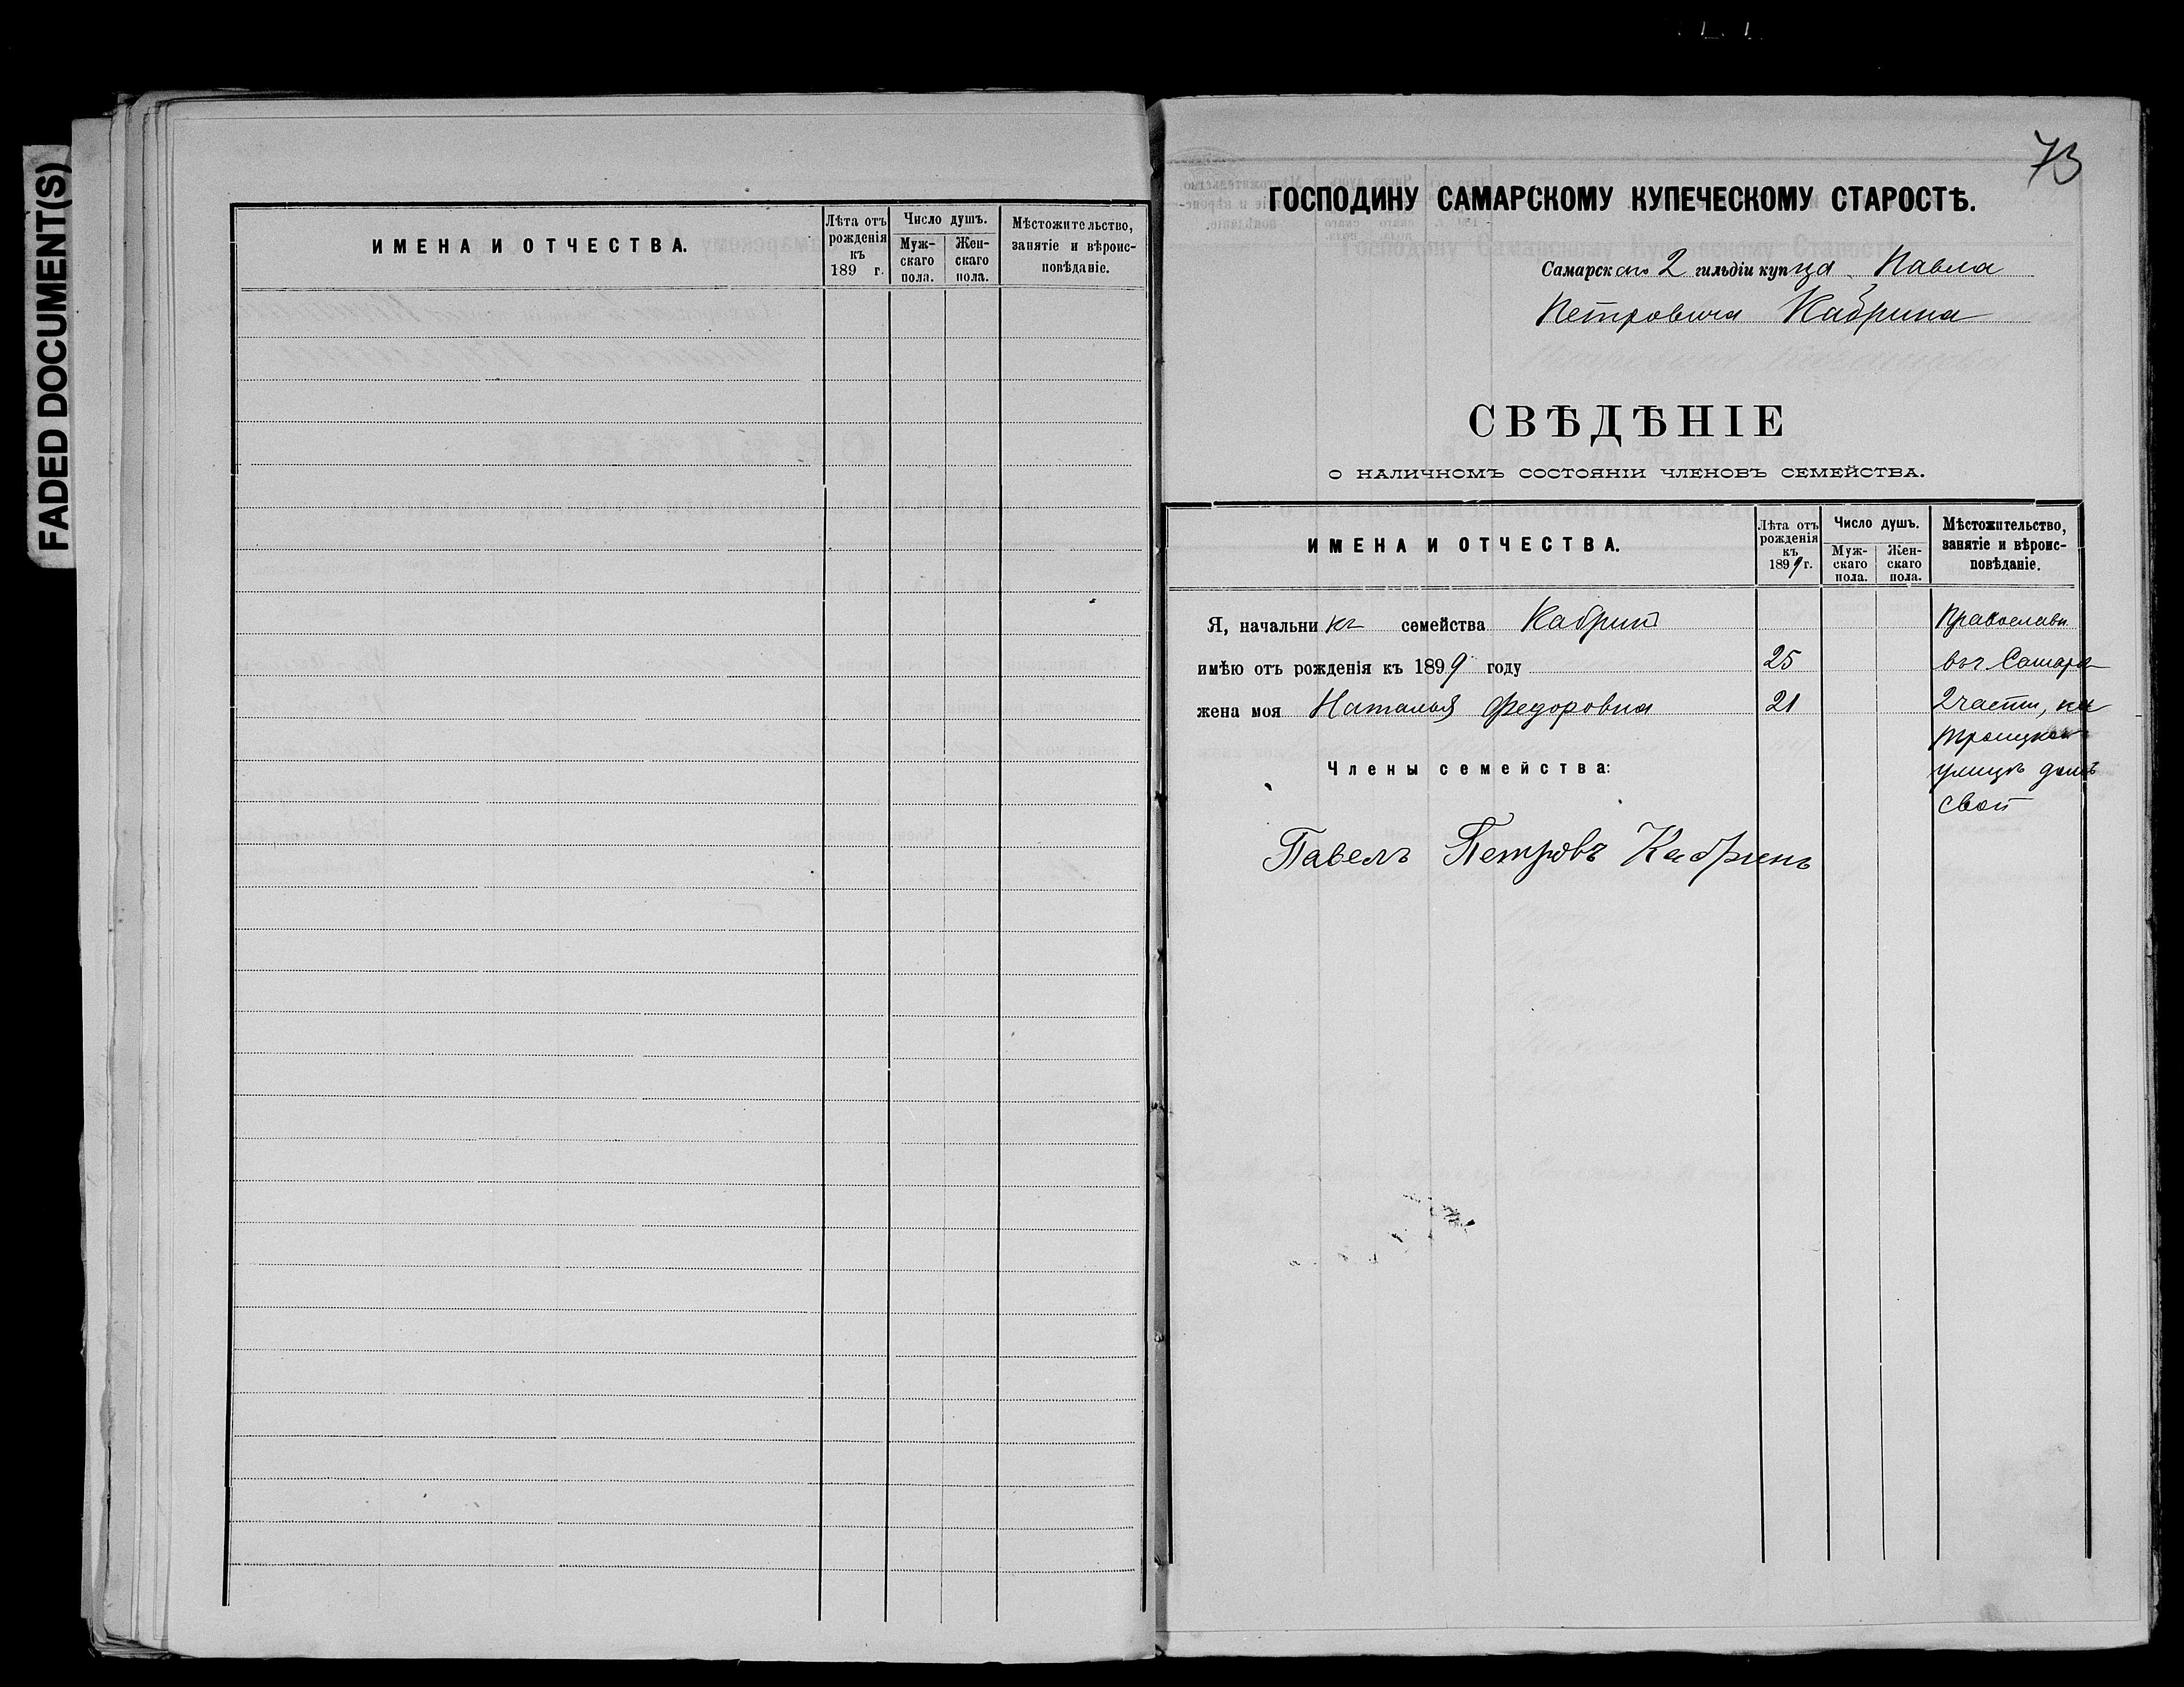 FADED DOCUMENT(S)
ИМЕНА И ОТЧЕСТВА.
Лѣта отъ рожденія къ 189 г.
Число душъ.
Мужскаго пола.
Женскаго пола.
Мѣстожительство, занятіе и вѣроисповѣданіе.
73
ГОСПОДИНУ САМАРСКОМУ КУПЕЧЕСКОМУ СТАРОСТѢ.
Самарскаго 2 гильдіи купца Павла
Петровича Кабрина
СВѢДѢНІЕ
О НАЛИЧНОМЪ СОСТОЯНІИ ЧЛЕНОВЪ СЕМЕЙСТВА.
ИМЕНА И ОТЧЕСТВА.
Лѣта отъ рожденія къ 1899 г.
Число душъ.
Мужскаго пола.
Женскаго пола.
Мѣстожительство, занятіе и вѣроисповѣданіе.
Я, начальникъ семейства Кабринъ Православн
имѣю отъ рожденія къ 1899 году 25 въ г. Самара
жена моя Наталья Федоровна 21 2 части, на
Троицкой
Члены семейства: улицѣ домъ
свой
Павелъ Петровъ Кабринъ